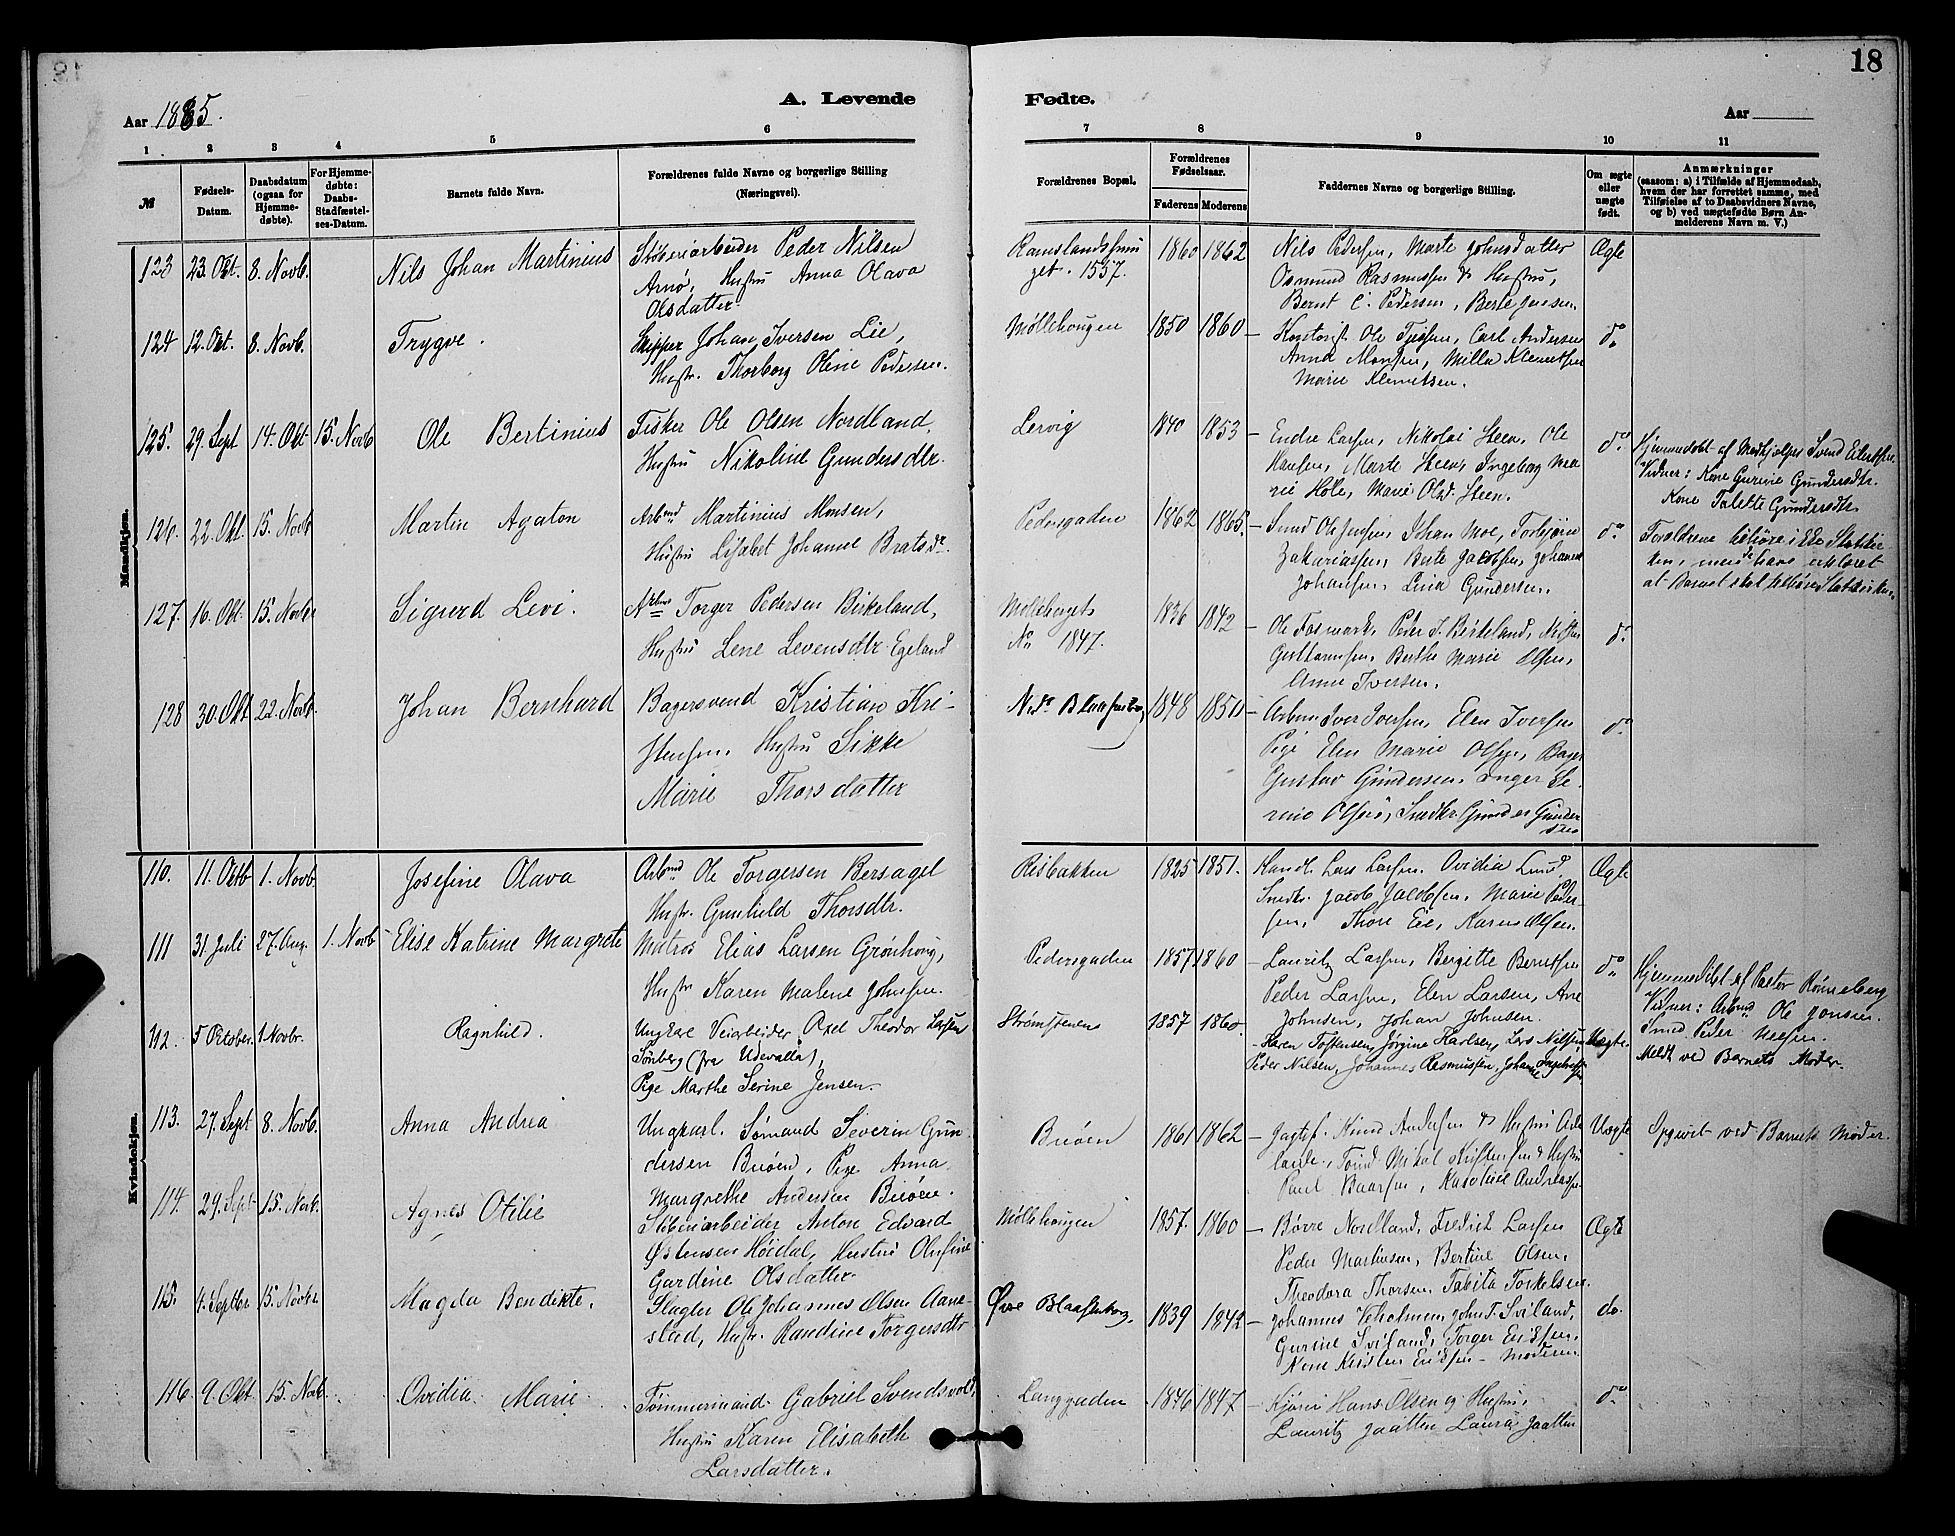 18
Aar 1885.
A. Levende
Fødte.
Aar
1 2 3 4 5 6 7 8 9 10 11
№
Fødsels-Datum.
Daabsdatum (ogsaa for Hjemmedøbte).
For Hjemmedøbte: Daabs-Stadfæstelses-Datum.
Barnets fulde Navn.
Forældrenes fulde Navne og borgerlige Stilling (Næringsvei).
Forældrenes Bopæl.
Forældrenes Fødselsaar.
Faderens Moderens
Faddernes Navne og borgerlige Stilling.
Om ægte eller uægte født.
Anmærkninger
(saasom: a) i Tilfælde af Hjemmedaab, hvem der har forrettet samme, med Tilføielse af to Daabsvidners Navne, og b) ved uægtefødte Børn Anmelderens Navn m. V.)
Mandkjøn.
123 23. Okt. 8. Novb. Nils Johan Martinius
Støberiarbeider Peder Nilsen
Arnø, Hustru Anna Olava
Olsdatter
1557.
1860 1862
Nils Pedersen, Marte Johnsdatter
Osmund Rasmussen & Hustru,
Bernt C. Pedersen,
Ægte
124 12. Okt. 8. Novb. Trygve.
Skipper Johan Iversen Lie,
Hustr. Thorborg Oline Pedersen.
Møllehougen 1850 1860
Carl Andersen
Anna Monsen, Milla Klemetsen
Marie Klemetsen.
do
125. 29. Sept. 14. Okt. 15. Novb. Ole Bertinius
Fisker Ole Olsen Nordland,
Hustru Nikoline Gundersdtr.
Lervig 1840 1853
Endre Larsen, Nikolai Steen, Ole
Hansen, Marte Steen, Ingeborg Ma-
rie Hole, Marie Olsd. Steen.
do
Hjemmedøbt af Svend
Vidner: Kone Gurine Gundersdtr.
Kone Talette Gundersdtr.
126. 22. Okt. 15. Novb. Martin Agaton
Arbmd Martinius Monsen,
Hustru Lisabet Johanne
Pedersgaden 1862 1865.
Johan Moe, Torbjørn
Zakariassen, Berte Jacobsen, Johanne
Johansen, Lina Gundersen.
do
Forældrene
men have erklæret
at Barnet skal
127. 16. Okt. 15. Novbr Sigurd Levi.
Torger Pedersen Birkeland,
Hustru Lene Levensdtr Egeland
No 1847.
1836 1842
Ole Fosmark, Peder T. Birkeland,
Berthe Marie Olsen,
Anne Iversen.
do
128 30. Okt. 22. Novb. Johan Bernhard
Bagersvend Kristian Kri-
stensen, Hustru Sikke
Marie Thorsdatter
1848 1850
Iver Iversen, Elen Iversen
Pige Elen Marie Olsen, Bager
Gustav Gundersen, Inger Se-
rine Olsen, Snedker
do
Kvindekjøn.
110. 11. Oktb 1. Novb. Josefine Olava
Arbmd Ole Torgersen Bersagel
Hustr. Gunhild Thorsdtr.
Risbakken 1825 1851.
Handl. Lars Larsen, Ovidia Lund,
Snedk. Jacob Jacobsen, Marie Peder-
sen, Thore Eie, Karen Olsen.
Ægte
111 31. Juli 27. Aug. 1. Novb Elise Katrine Margrete
Matros Elias Larsen Grønhoug,
Hustr Karen Malene Johnsen.
Pedersgaden 1857 1860
Lauritz Larsen, Bergitte Berntsen
Peder Larsen, Elen Larsen, Ane
Johnsen, Johan Johnsen.
do
Hjemmedøbt af Pastor Rønneberg
Vidner: Arbmd Ole Jonsen.
Smed Peder
112. 5 Oktober. 1 Novbr. Ragnhild.
Ungkarl Veiarbeider Axel Theodor Larsen
Tønberg (fra Udevalla),
Pige Marthe Serine Jensen.
Strømstenene 1857 1860.
Karen Tostensen, Jørgine Karlsen, Lars Nilsen,
Peder Nilsen, Johannes Rasmussen,
Uægte.
Meldt ved Barnets Moder.
113. 27. Sept 8. Novb. Anna Andrea
Ungkarl. Sømand Severin Gun-
dersen Buøen, Pige Anna
Margrethe Andersen Buøen.
Buøen 1861 1862
Knud Andersen & Hustru
Mikal & Hustru
Paul Baarsen, Karoline Andreassen
Uægte
Opgivet ved Barnets Moder.
114. 29. Sept 15. Novb. Agnes Otilie
Støberiarbeider Anton Edvard
Østensen Høidal, Hustru Olufine
Gardine Olsdatter
Møllehougen 1857. 1860
Børre Nordland, Fredrik Larsen
Peder Martinsen, Bertine Olsen,
Theodora Thorsen, Tabita Torkelsen.
Ægte
115. 4. Septbr 15. Novbr. Magda Bendikte.
Slagter Ole Johannes Olsen Aane-
stad, Hustr. Randine Torgersdtr
Øvre Blaasenborg. 1839 1842
Johannes Veholmen, John T. Sviland,
Gurine Sviland, Torger Eriksen,
Kone Kristen Eriksen - Moderen
do.
116. 9. Okt. 15. Novb. Ovidia Marie
Tømmermand Gabriel Svendsvold,
Hustru Karen Elisabeth
Larsdatter.
Langgaden 1846 1847
Hans Olsen og Hustru,
Lauritz Jaatten Laura Jaatten
do